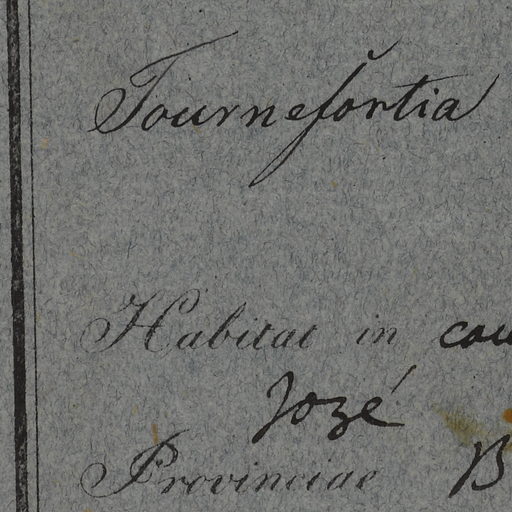 Tournefortia
Habitat in
Jozé
Provinciae B